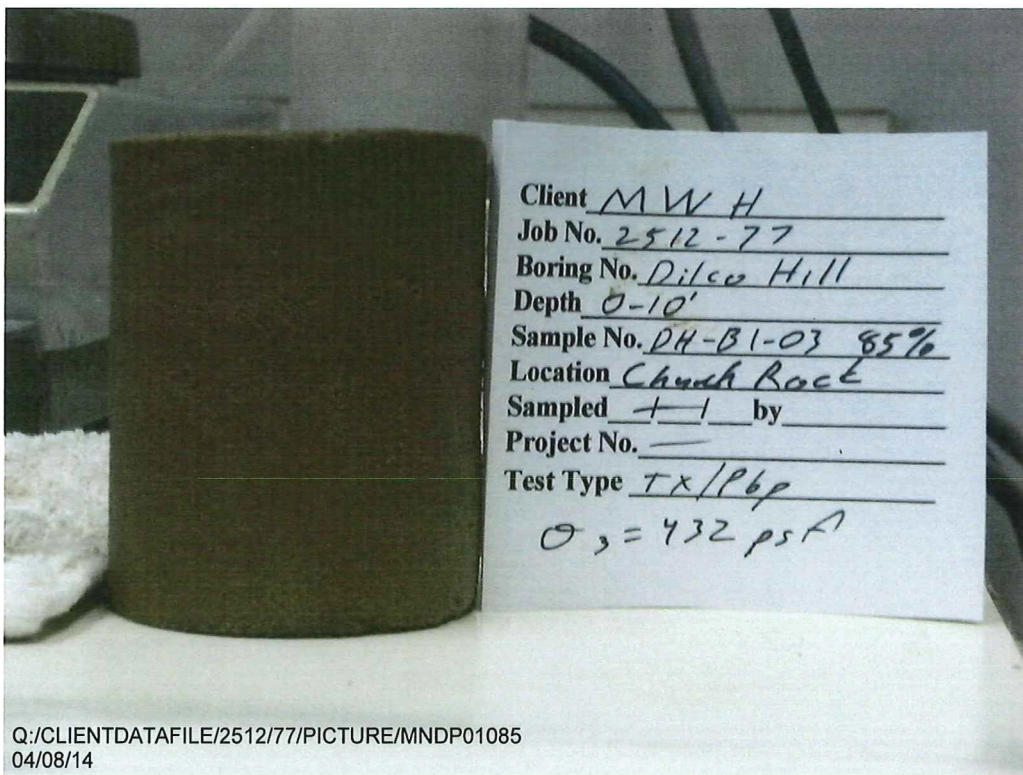 Client MWH
Job No. 2512-77
Boring No. Dilco Hill
Depth 0-10'
Sample No. DH-B1-03 85%
Location Church Rock
Sampled by
Project No. —
Test Type TX/Pbp
σ3 = 432 psf
Q:/CLIENTDATAFILE/2512/77/PICTURE/MNDP01085
04/08/14